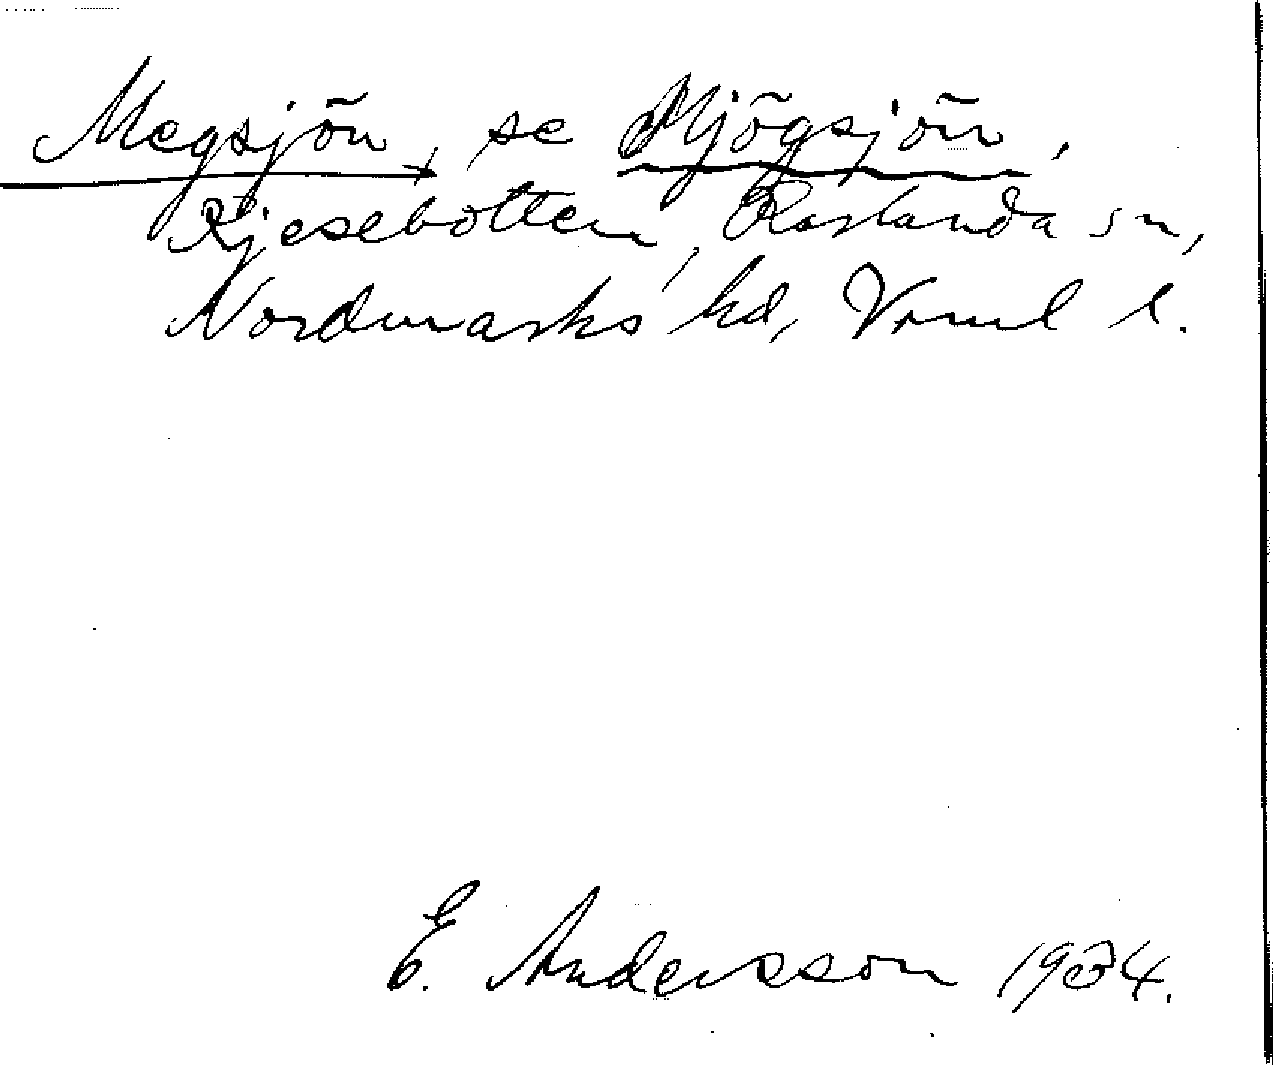 Megsjön, se Mjögsjön,
Rjesebotten, Karlanda sn,
Nordmarks hd, Vrml l.
E. Andersson 1934.